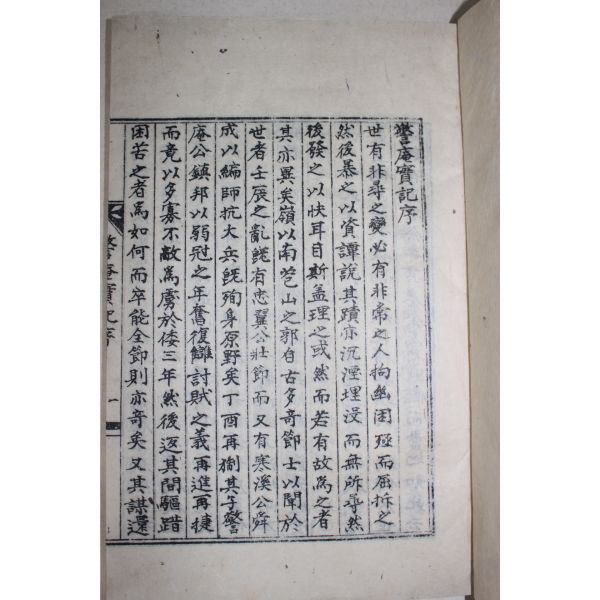 警庵實記序
世有非尋之變必有非常之人拘幽困殛而屈折之
然後暴之以資譚說其蹟亦沉湮埋沒而無所尋然
後發之以快耳目斯盖理之或然而若有故為之者
其亦異矣嶺以南苞山之郭自古多奇節士以聞於
世者壬辰之亂旣有忠翼公壯節而又有寒溪公舜
成以編師抗大兵旣殉身原野矣丁酉再猘其子警
庵公鎮邦以弱冠之年奮復讎討賊之義再進再捷
而竟以多寡不敵為虜於倭三年然後返其間驅踏
困苦之者為如何而卒能全節則亦奇矣又其謀還
警庵實記序
一